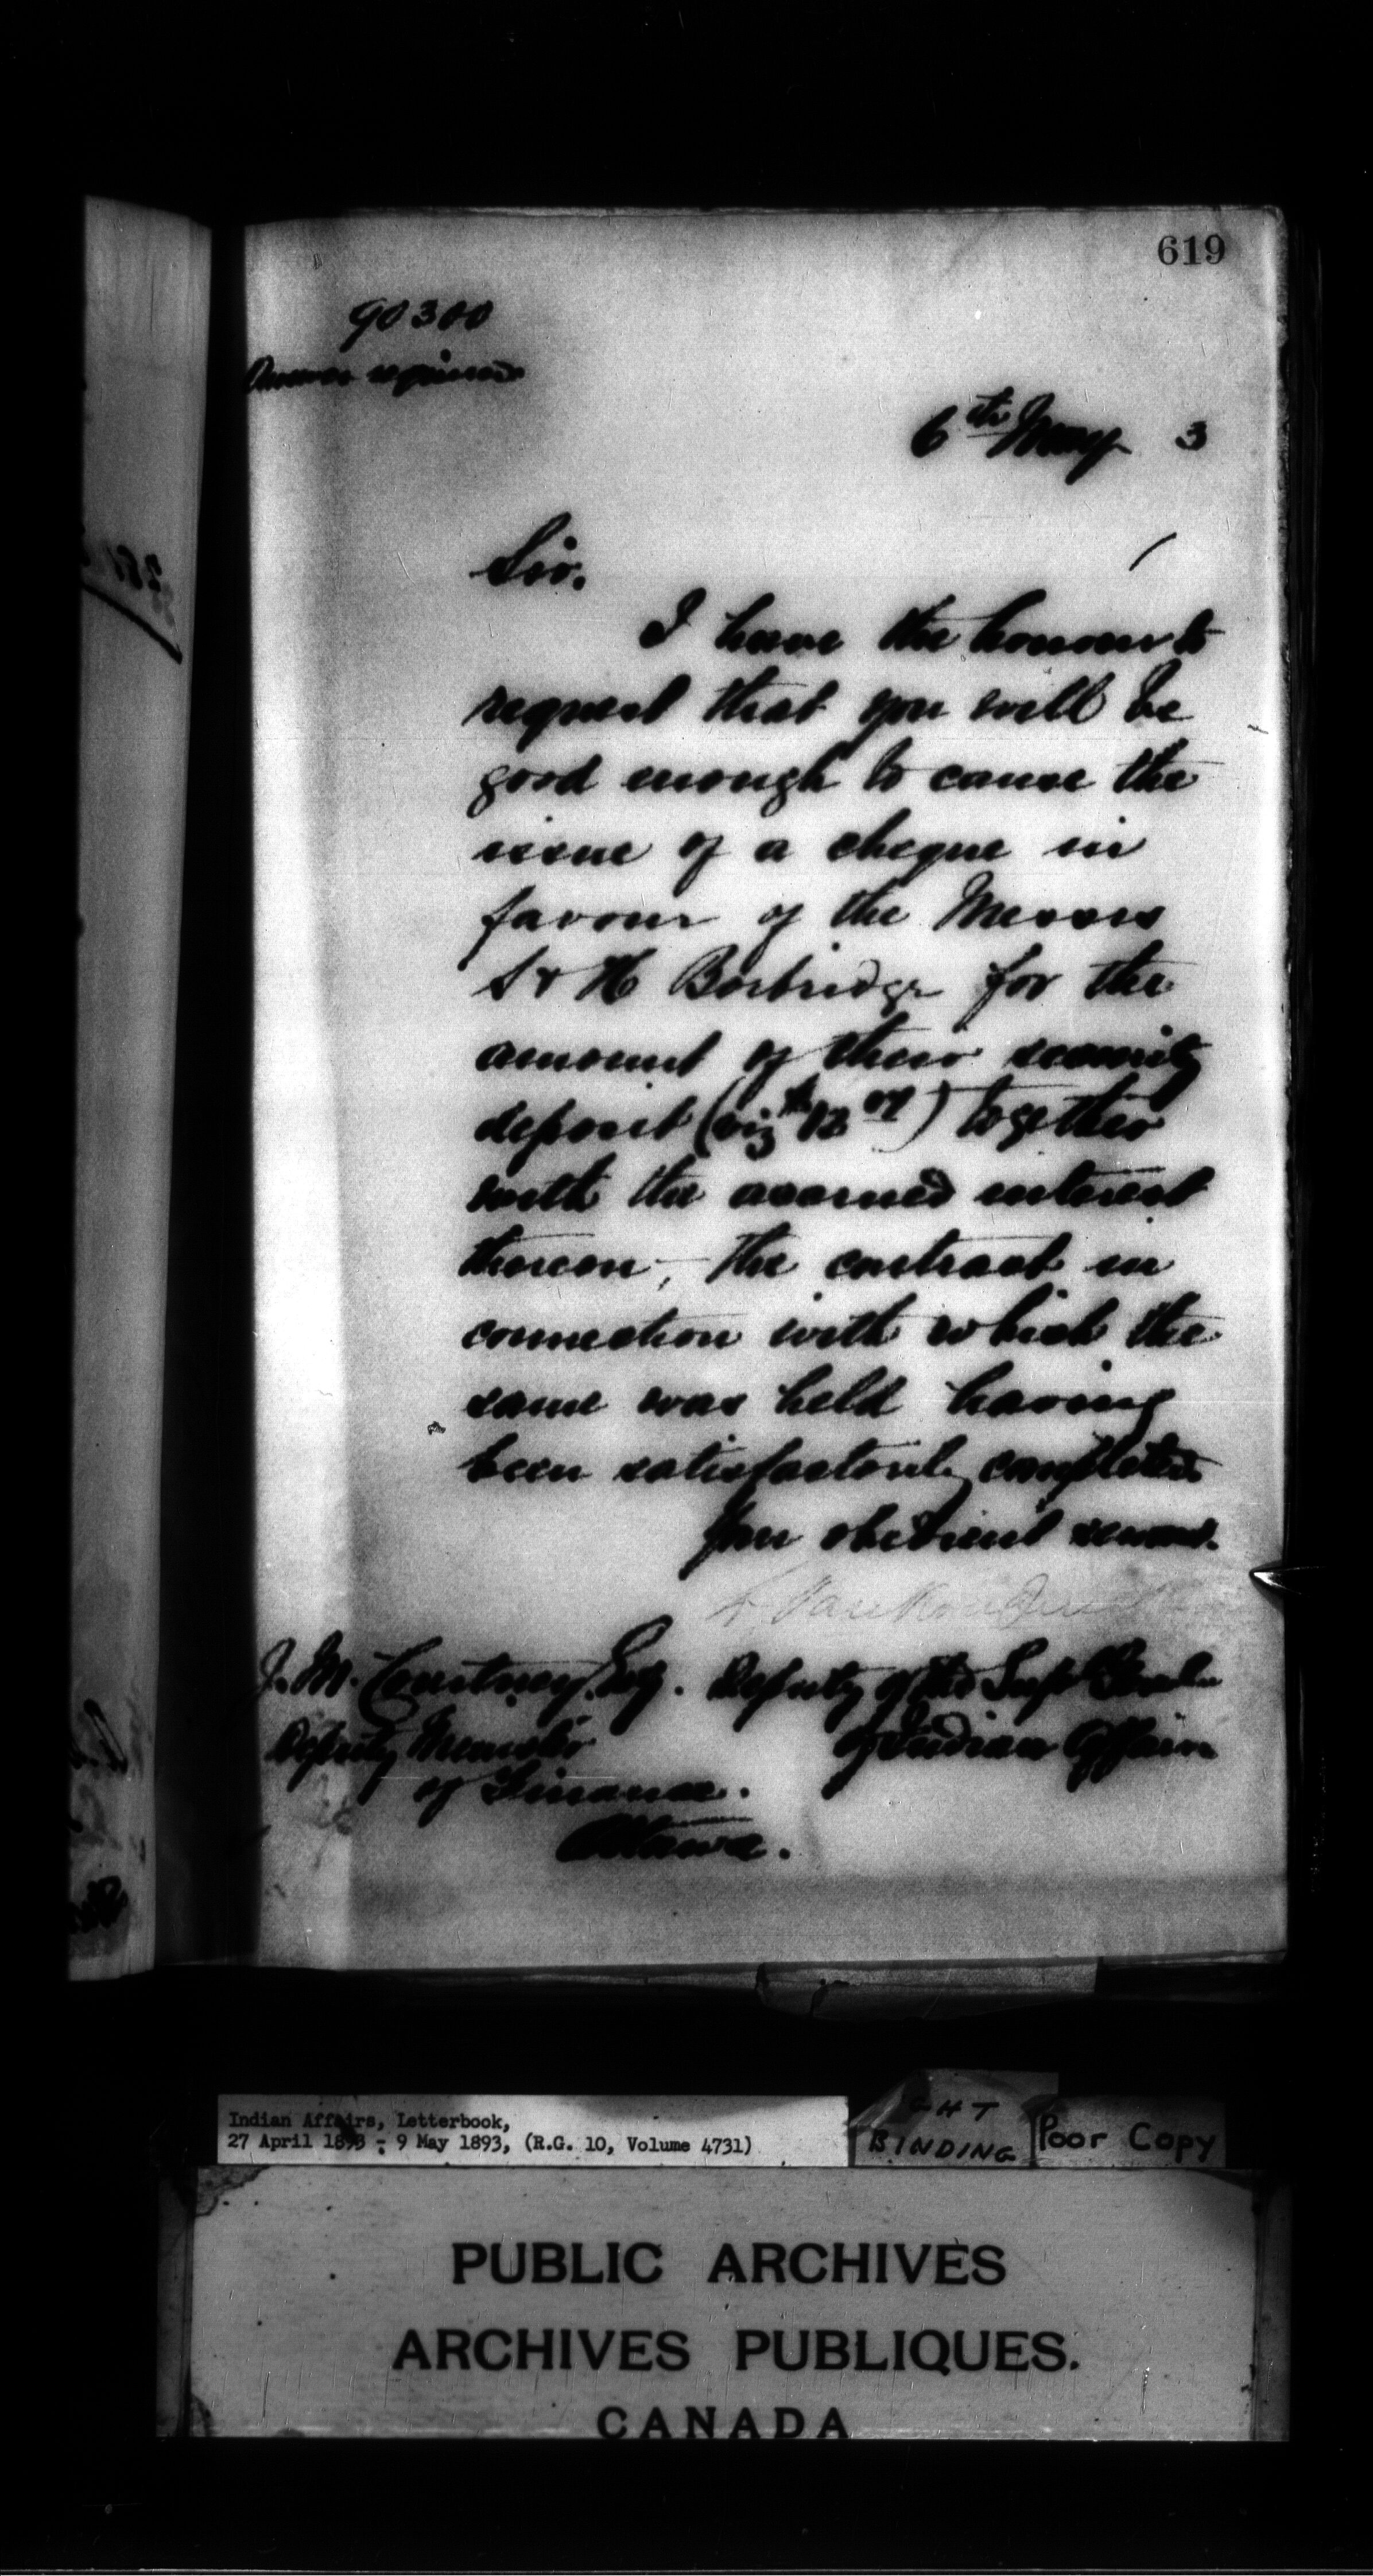 619
90300
Answer required
6th May 3
Sir.
I have the honour to
request that you will be
good enough to cause the
issue of a cheque in
favour of the Messrs
S & H Borbridge for the
amount of their security
deposit (viz $12) together
with the accrued interest
thereon, the contract in
connection with which the
same was held having
been satisfactorily completed
Your obedient servant.
L. VanKoughnet
J. M. Courtney, Esq.
Deputy Minister
of Finance.
Ottawa.
Deputy of the Supt General
of Indian Affairs
Indian Affairs, Letterbook,
27 April 1893 - 9 May 1893, (R.G. 10, Volume 4731)
BINDING
Poor Copy
PUBLIC ARCHIVES
ARCHIVES PUBLIQUES.
CANADA